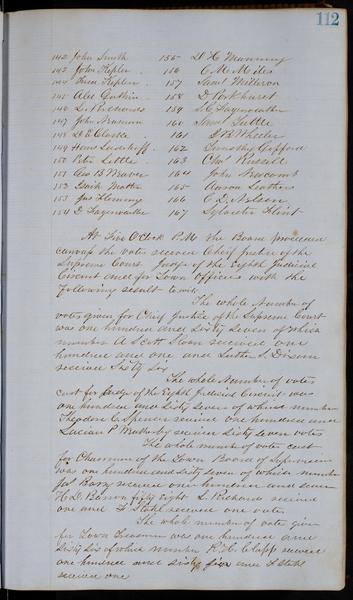 112
142 John Smith 155 D H Manning
143 John Kepler 156 C M Miles
144 Kepler 157 Saml Wilson
145 Alex Guthrie 158 D Parkhurst
146 L Richards 159 S C Fayerweather
147 John Newman 160 Saml Tuttle
148 D E Clarke 161 J B Wheeler
149 Hans 162 Timothy Gifford
150 Peter Settle 163 Chas Russell
151 Geo B Weaver 164 John Newcomb
152 Isaih Mather 165 Aaron Leathers
153 Jas Flemmy 166 C D Nelson
154 D Fayerweather 167 Sylvester Flint
At Five O'Clock P.M. the Board proceeded
canvass the votes received Chief Justice of the
Supreme Court Judge of the Eighth Judicial
Circuit and for Town Officers with the
following result to wit
The whole Number of
votes given for Chief Justice of the Supreme Court
was one hundred and Sixty Seven of which
number A Scott Sloan received one
hundred and one and Luther S. Dixon
received Sixty Six
The whole Number of votes
cast for Judge of the Eighth Judicial Circuit was
one hundred and Sixty Seven of which number
Theodore C received one hundred and
Lucien P received Sixty Seven votes
The whole number of votes cast
for Chairman of the Town Board of Supervisors
was one hundred and sixty seven of which number
Jas received one hundred and seven
H. D. Barron fifty eight L. Richards received
one and F Stahl received one vote
The whole number of votes given
for Town Treasurer was one hundred and
Sixty Six of which number R. H. Clapp received
one hundred and sixty five and F Stahl
received one